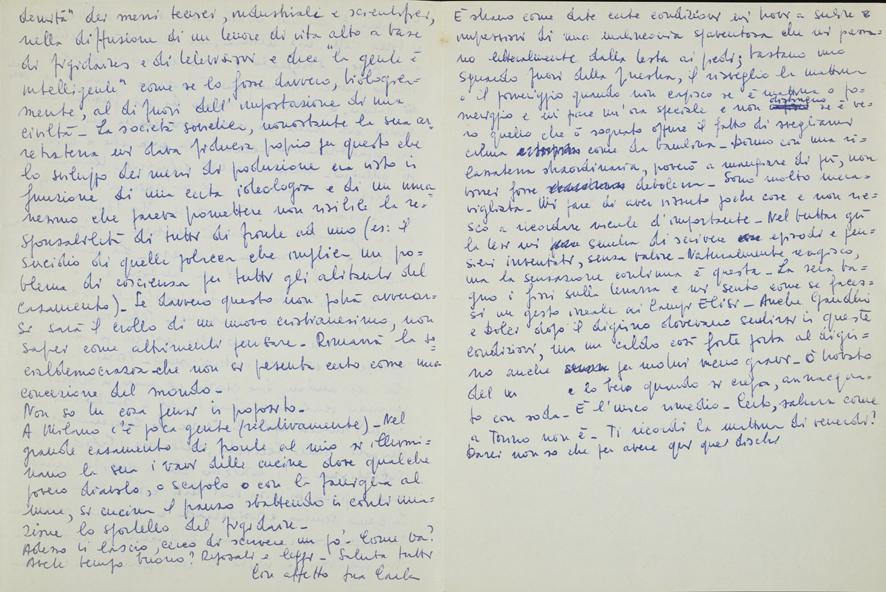 densità" dei mezzi tecnici, industriali e scientifici,
nella diffusione di un tenore di vita alto a base
di frigidaires e di televisori e dice "la gente è
intelligente" come se lo fosse davvero, biologica-
mente, al di fuori dell'impostazione di una
civiltà – La società sovietica, nonostante la sua ar-
retratezza mi dava fiducia proprio per questo che
lo sviluppo dei mezzi di produzione era visto in
funzione di una certa ideologia e di un uma-
nesimo che pareva permettere non risibile la re-
sponsabilità di tutti di fronte ad uno (es: il
suicidio di quelle che implica un pro-
blema di coscienza per tutti gli abitanti del
casamento) – Se davvero questo non potrà avverar-
si sarà il crollo di un nuovo cristianesimo, non
saprei come altrimenti pensare – Rimarrà la so-
cialdemocrazia che non si presenta certo come una
concezione del mondo –
Non so tu cosa pensi in proposito –
A Milano c'è poca gente (relativamente) – Nel
grande casamento di fronte al mio si illumi-
nano la sera i vani delle cucine dove qualche
povero diavolo, o scapolo o con la famiglia al
mare, si cucina il pranzo sbattendo in continua-
zione lo sportello del frigidaire –
Adesso ti lascio, cerco di scrivere un po' – Come va?
Avete tempo buono? Riposati e leggi – Saluta tutti
Con affetto tua Carla
È strano come date certe condizioni mi trovi a subire
impressioni di una malinconia spaventosa che mi passa-
no letteralmente dalla testa ai piedi; bastano uno
sguardo fuori della finestra, il risveglio la mattina
o il pomeriggio quando non capisco se è mattina o po-
meriggio e mi pare un'ora speciale e non distinguo se è ve-
ro quello che è sognato oppure il fatto di svegliarmi
calma come da bambina – Dormo con una ri-
lassatezza straordinaria, proverò a mangiare di più, non
vorrei fosse debolezza – Sono molto mera-
vigliata – Mi pare di aver vissuto poche cose e non rie-
sco a ricordare niente d'importante – Nel buttar giù
la tesi mi sembra di scrivere episodi e pen-
sieri inventati, senza valore – Naturalmente reagisco,
ma la sensazione continua è questa – La sera ba-
gno i fiori sulla terrazza e mi sento come se faces-
si un gesto irreale ai Campi Elisi – Anche Gandhi
e Dolci dopo il digiuno dovevano sentirsi in queste
condizioni, ma un caldo così forte porta al digiu-
no anche per motivi meno gravi – Ho trovato
del e lo bevo quando si cena, annacqua-
to con soda – È l'unico rimedio – Certo, salute come
a Torino non è – Ti ricordi la mattina di venerdì?
Darei non so che per avere qui quei dischi